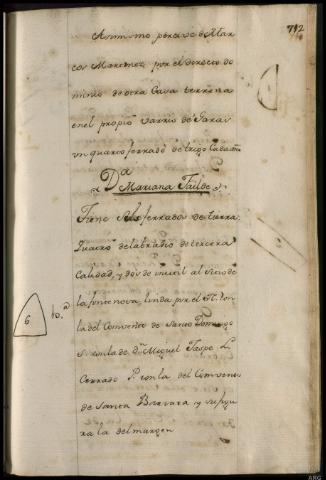 712
Asimismo percive de Mar
cos Martinez por el derecho do
minio de otra Casa terrena
en el propio varrio de Garas
un quarto ferrado de trigo Cada año
Dª Mariana Taibo
Tiene Seis ferrados de tierra
Quatro de labradio de tercera
Calidad, y dos de inutil al sitio de
la fonte nova, linda por el N. con
la del Convento de Santo Domingo
S. con la de Dn Miguel Taspe L.
Cerrado P. con la del Convento
de Santa Barvara y su figu
ra la del margen
10.a
6
ARG